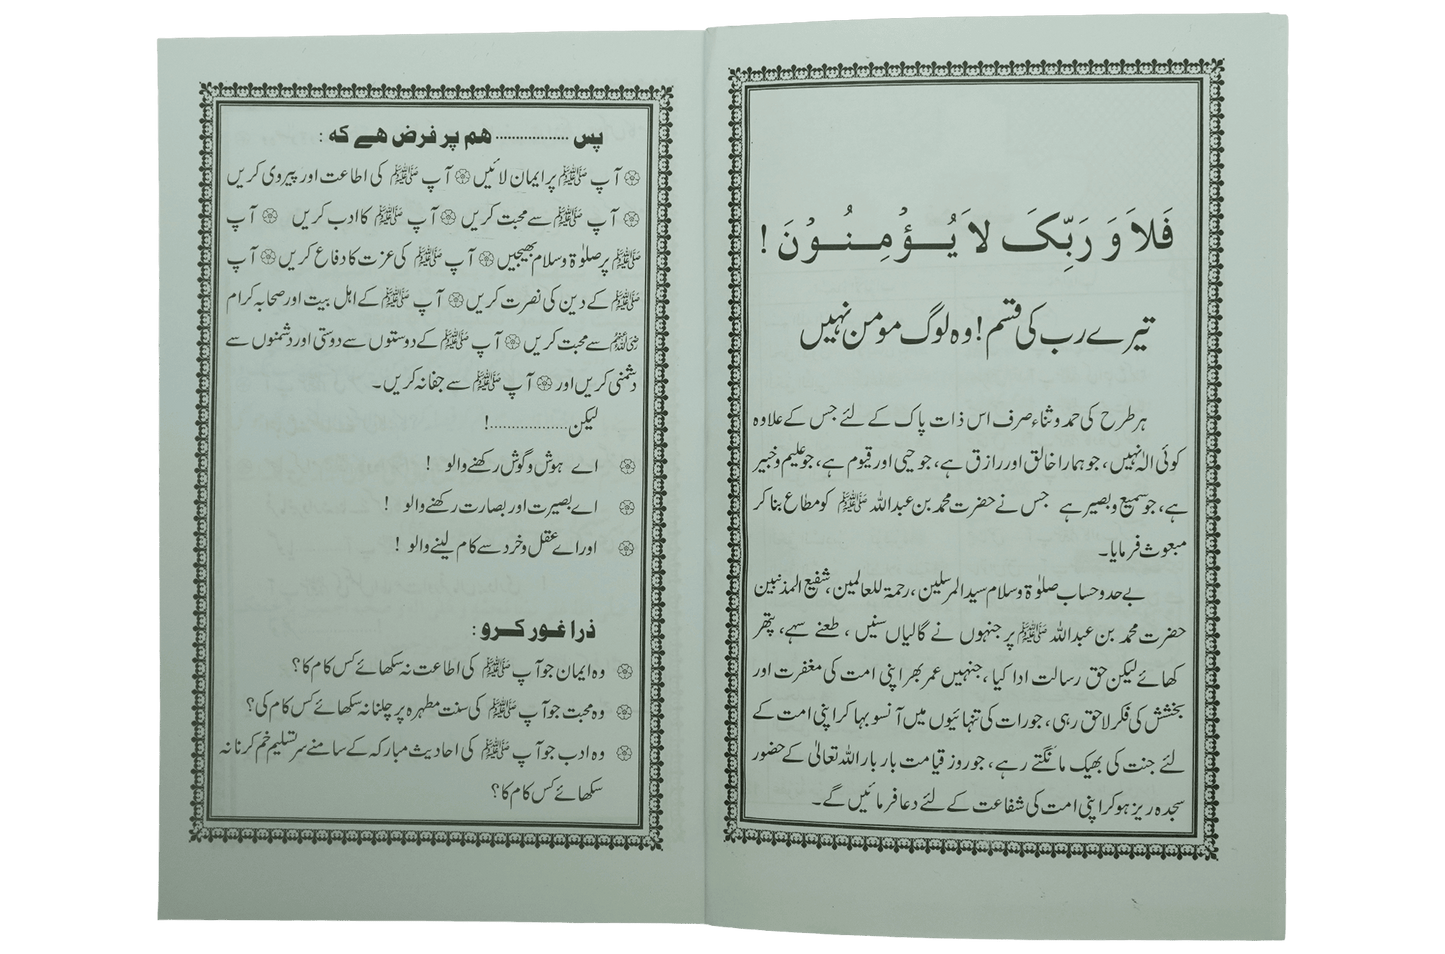 فَلاَ وَ رَبِّکَ لاَ يُـــؤْمِـنُـوْنَ !
تیرے رب کی قسم ! وہ لوگ مومن نہیں
ہر طرح کی حمد و ثناء صرف اس ذات پاک کے لئے جس کے علاوہ
کوئی الٰہ نہیں، جو ہمارا خالق اور رازق ہے، جو حیی اور قیوم ہے، جو علیم و خبیر
ہے، جو سمیع و بصیر ہے جس نے حضرت محمد بن عبداللہ ﷺ کو مطاع بنا کر
مبعوث فرمایا۔
بے حد و حساب صلوٰۃ و سلام سید المرسلین، رحمۃ للعالمین، شفیع المذنبین
حضرت محمد بن عبداللہ ﷺ پر جنہوں نے گالیاں سنیں، طعنے سہے، پتھر
کھائے لیکن حق رسالت ادا کیا، جنہیں عمر بھر اپنی امت کی مغفرت اور
بخشش کی فکر لاحق رہی، جو رات کی تنہائیوں میں آنسو بہا کر اپنی امت کے
لئے جنت کی بھیک مانگتے رہے، جو روز قیامت بار بار اللہ تعالیٰ کے حضور
سجدہ ریز ہو کر اپنی امت کی شفاعت کے لئے دعا فرمائیں گے۔
پس ................. ھم پر فرض ھے کہ :
❁ آپ ﷺ پر ایمان لائیں ❁ آپ ﷺ کی اطاعت اور پیروی کریں
❁ آپ ﷺ سے محبت کریں ❁ آپ ﷺ کا ادب کریں ❁ آپ
ﷺ پر صلوٰۃ و سلام بھیجیں ❁ آپ ﷺ کی عزت کا دفاع کریں ❁ آپ
ﷺ کے دین کی نصرت کریں ❁ آپ ﷺ کے اہل بیت اور صحابہ کرام
رضی اللہ عنہم سے محبت کریں ❁ آپ ﷺ کے دوستوں سے دوستی اور دشمنوں سے
دشمنی کریں اور ❁ آپ ﷺ سے جفا نہ کریں۔
لیکن..................!
❁ اے ہوش و گوش رکھنے والو !
❁ اے بصیرت اور بصارت رکھنے والو !
❁ اور اے عقل و خرد سے کام لینے والو !
ذرا غور کرو :
❁ وہ ایمان جو آپ ﷺ کی اطاعت نہ سکھائے کس کام کا؟
❁ وہ محبت جو آپ ﷺ کی سنت مطہرہ پر چلنا نہ سکھائے کس کام کی؟
❁ وہ ادب جو آپ ﷺ کی احادیث مبارکہ کے سامنے سر تسلیم خم کرنا نہ
سکھائے کس کام کا؟